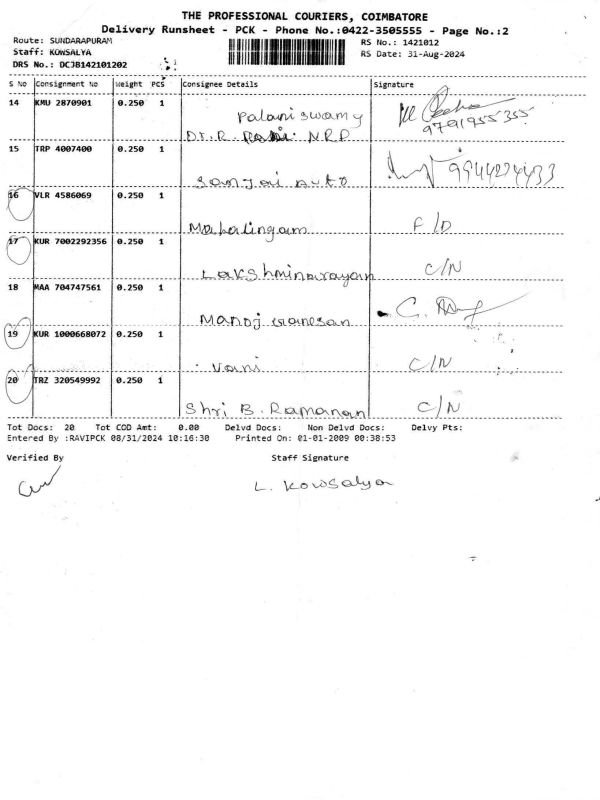 THE PROFESSIONAL COURIERS, COIMBATORE
Delivery Runsheet - PCK - Phone No.:0422-3505555 - Page No.:2
Route: SUNDARAPURAM RS No.: 1421012
Staff: KOWSALYA RS Date: 31-Aug-2024
DRS No.: DCJB142101202
S No Consignment No Weight PCS Consignee Details Signature
14 KMU 2870901 0.250 1 Palaniswamy
Dr. R. NRP 9791955355
15 TRP 4007400 0.250 1 9944224433
Sanjai Auto
16 VLR 4586069 0.250 1
Mahalingam F/D
17 KUR 7002292356 0.250 1
Lakshminarayan C/N
18 MAA 704747561 0.250 1
Manoj
19 KUR 1000668072 0.250 1
Vani C/N
20 TRZ 320549992 0.250 1
Shri B. Ramanan C/N
Tot Docs: 20 Tot COD Amt: 0.00 Delvd Docs: Non Delvd Docs: Delvy Pts:
Entered By :RAVIPCK 08/31/2024 10:16:30 Printed On: 01-01-2009 00:38:53
Verified By Staff Signature
L. Kowsalya